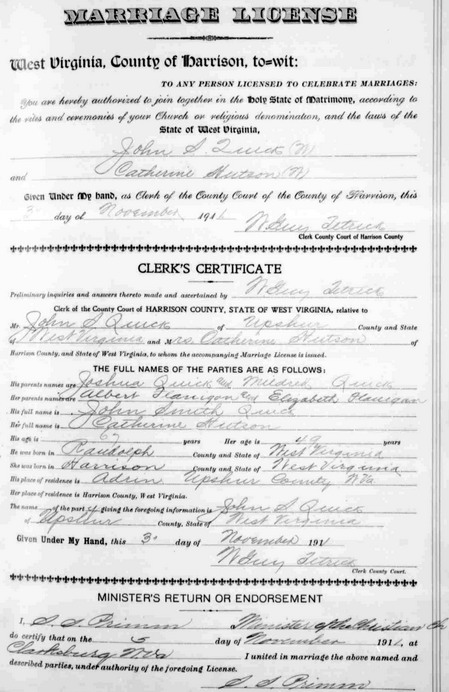 MARRIAGE LICENSE
West Virginia, County of Harrison, to=wit:
TO ANY PERSON LICENSED TO CELEBRATE MARRIAGES:
You are hereby authorized to join together in the Holy State of Matrimony, according to
the rites and ceremonies of your Church or religious denomination, and the laws of the
State of West Virginia,
John S. Quick (W)
and Catherine Hutson (W)
Given Under My hand, as Clerk of the County Court of the County of Harrison, this
3 day of November 1911
W Guy Tetrick
Clerk County Court of Harrison County
CLERK'S CERTIFICATE
Preliminary inquiries and answers thereto made and ascertained by W Guy Tetrick
Clerk of the County Court of HARRISON COUNTY, STATE OF WEST VIRGINIA, relative to
Mr. John S Quick of Upshur County and State
of West Virginia and Mrs. Catherine Hutson of
Harrison County, and State of West Virginia, to whom the accompanying Marriage License is issued.
THE FULL NAMES OF THE PARTIES ARE AS FOLLOWS:
His parents names are Joshua Quick and Mildred Quick
Her parents names are Albert Flanigan and Elizabeth Flanigan
His full name is John Smith Quick
Her full name is Catherine Hutson
His age is years Her age is 49 years
He was born in Randolph County and State of West Virginia
She was born in Harrison County and State of West Virginia
His place of residence is Upshur County W Va
Her place of residence is Harrison County, West Virginia.
The name of the party giving the foregoing information is John S Quick
of Upshur County, State of West Virginia
Given Under My Hand, this 3 day of November 1911
W Guy Tetrick
Clerk County Court.
MINISTER'S RETURN OR ENDORSEMENT
I, S. S. Primm Minister of the Christian Ch
do certify that on the day of November 1911, at
Clarksburg W Va I united in marriage the above named and
described parties, under authority of the foregoing License.
S. S. Primm